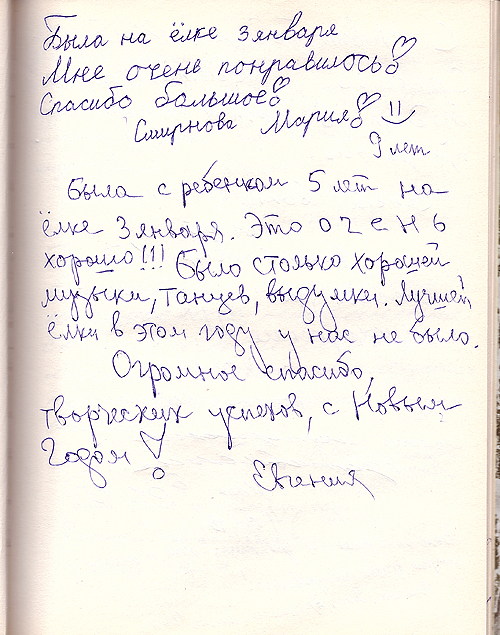 Была на ёлке 3 января
Мне очень понравилось!
Спасибо большое!
Смирнова Мария!
9 лет
Была с ребенком 5 лет на
ёлке 3 января. Это о ч е н ь
хорошо!!! Было столько хорошей
музыки, танцев, выдумки. Лучшей
ёлки в этом году у нас не было.
Огромное спасибо,
творческих успехов, с Новым
Годом!
Евгения